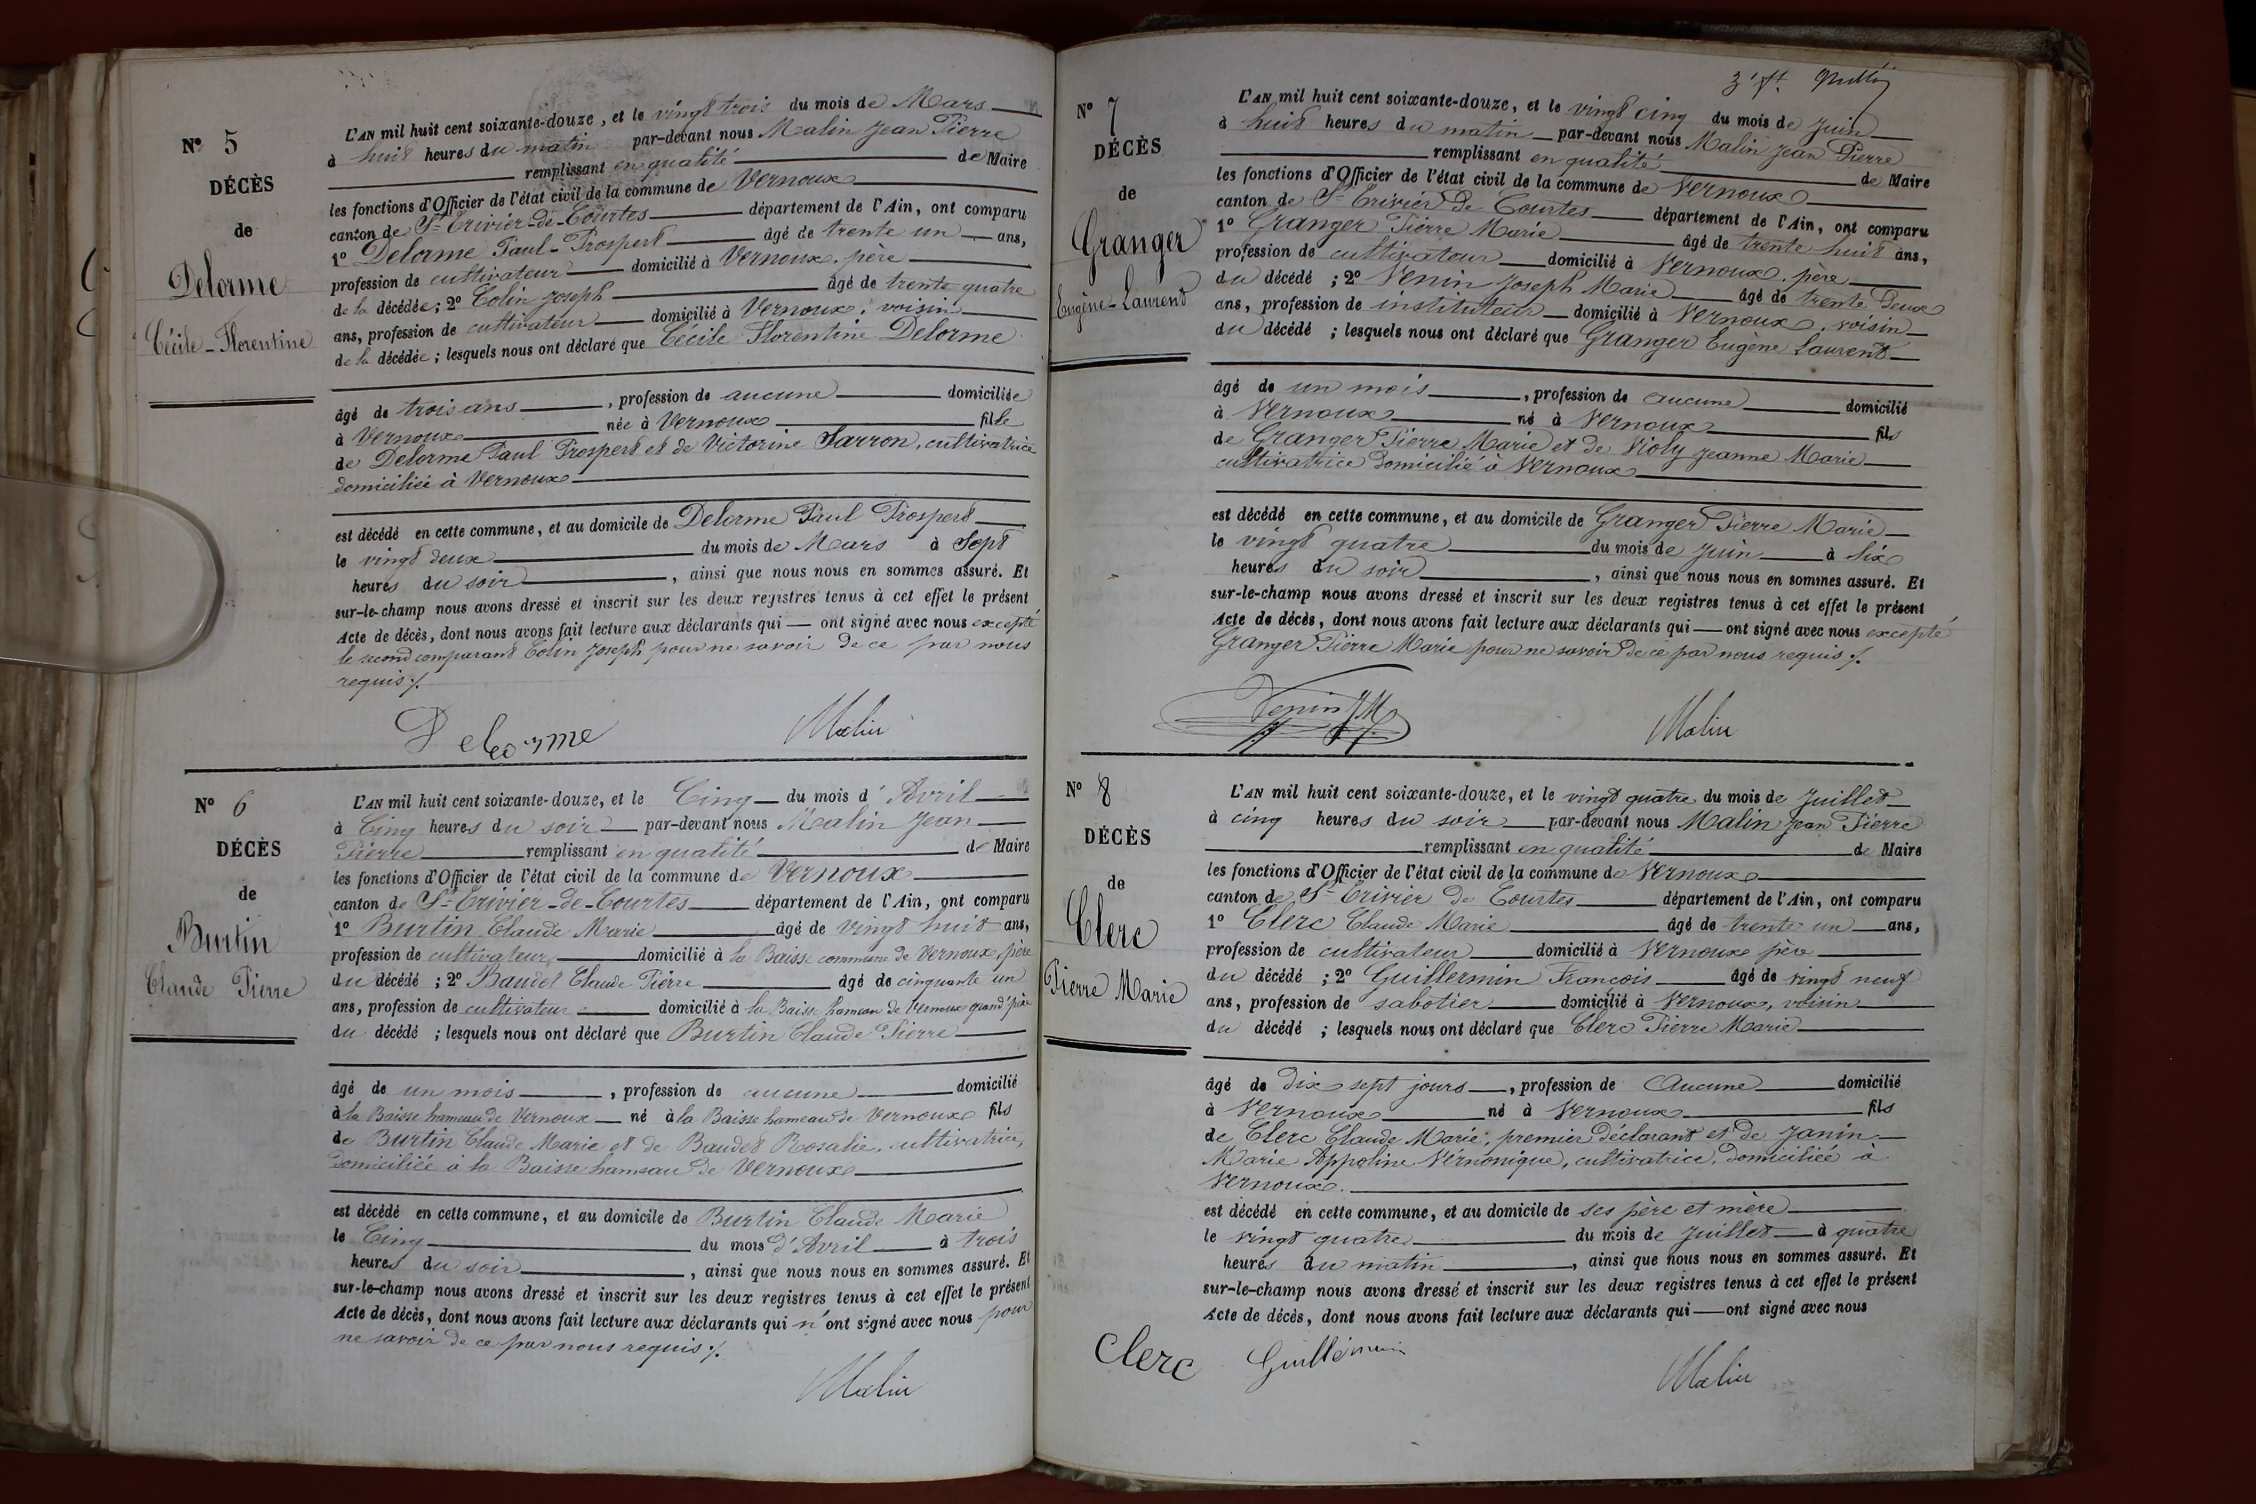 N° 5
DÉCÈS
de
Delorme
Cécile-Florentine
L'AN mil huit cent soixante-douze, et le vingt trois du mois de Mars
à huit heures du matin par-devant nous Malin Jean Pierre
remplissant en qualité de Maire
les fonctions d'Officier de l'état civil de la commune de Vernoux
canton de St Trivier-de-Courtes département de l'Ain, ont comparu
1° Delorme Paul-Prospert âgé de trente un ans,
profession de cultivateur domicilié à Vernoux, père
de la décédée; 2° Colin Joseph âgé de trente quatre
ans, profession de cultivateur domicilié à Vernoux, voisin
de la décédée; lesquels nous ont déclaré que Cécile Florentine Delorme
âgé de trois ans, profession de aucune domiciliée
à Vernoux née à Vernoux fille
de Delorme Paul Prospert et de Victorine Sarron, cultivatrice
domiciliée à Vernoux
est décédé en cette commune, et au domicile de Delorme Paul Prospert
le vingt deux du mois de Mars à Sept
heures du soir, ainsi que nous nous en sommes assuré. Et
sur-le-champ nous avons dressé et inscrit sur les deux registres tenus à cet effet le présent
Acte de décès, dont nous avons fait lecture aux déclarants qui ont signé avec nous excepté
le second comparant Colin Joseph pour ne savoir de ce par nous
requis ⁒
Delorme Malin
N° 6
DÉCÈS
de
Burtin
Claude Pierre
L'AN mil huit cent soixante-douze, et le Cinq du mois d'Avril
à Cinq heures du soir par-devant nous Malin Jean
Pierre remplissant en qualité de Maire
les fonctions d'Officier de l'état civil de la commune de Vernoux
canton de St Trivier-de-Courtes département de l'Ain, ont comparu
1° Burtin Claude Marie âgé de vingt huit ans,
profession de cultivateur domicilié à la Baisse commune de Vernoux, père
du décédé; 2° Baudet Claude Pierre âgé de cinquante un
ans, profession de cultivateur domicilié à la Baisse hameau de Vernoux grand'père
du décédé; lesquels nous ont déclaré que Burtin Claude Pierre
âgé de un mois, profession de aucune domicilié
à la Baisse hameau de Vernoux né à la Baisse hameau de Vernoux fils
de Burtin Claude Marie et de Baudet Rosalie, cultivatrice,
domiciliée à la Baisse hameau de Vernoux
est décédé en cette commune, et au domicile de Burtin Claude Marie
le Cinq du mois d'Avril à trois
heures du soir, ainsi que nous nous en sommes assuré. Et
sur-le-champ nous avons dressé et inscrit sur les deux registres tenus à cet effet le présent
Acte de décès, dont nous avons fait lecture aux déclarants qui n'ont signé avec nous pour
ne savoir de ce par nous requis ⁒
Malin
N° 7
DÉCÈS
de
Granger
Eugène-Laurent
L'AN mil huit cent soixante-douze, et le vingt cinq du mois de Juin
à huit heures du matin par-devant nous Malin Jean Pierre
remplissant en qualité de Maire
les fonctions d'Officier de l'état civil de la commune de Vernoux
canton de St Trivier De Courtes département de l'Ain, ont comparu
1° Granger Pierre Marie âgé de trente huit ans,
profession de cultivateur domicilié à Vernoux, père
du décédé; 2° Venin Joseph Marie âgé de trente Deux
ans, profession de instituteur domicilié à Vernoux, voisin
du décédé; lesquels nous ont déclaré que Granger Eugène Laurent
âgé de un mois, profession de aucune domicilié
à Vernoux né à Vernoux fils
de Granger Pierre Marie et de Violy Jeanne Marie
cultivatrice domicilié à Vernoux
est décédé en cette commune, et au domicile de Granger Pierre Marie
le vingt quatre du mois de Juin à Six
heures du soir, ainsi que nous nous en sommes assuré. Et
sur-le-champ nous avons dressé et inscrit sur les deux registres tenus à cet effet le présent
Acte de décès, dont nous avons fait lecture aux déclarants qui ont signé avec nous excepté
Granger Pierre Marie pour ne savoir De ce par nous requis ⁒
Venin JM Malin
N° 8
DÉCÈS
de
Clerc
Pierre Marie
L'AN mil huit cent soixante-douze, et le vingt quatre du mois de Juillet
à cinq heures du soir par-devant nous Malin Jean Pierre
remplissant en qualité de Maire
les fonctions d'Officier de l'état civil de la commune de Vernoux
canton de St Trivier de Courtes département de l'Ain, ont comparu
1° Clerc Claude Marie âgé de trente un ans,
profession de cultivateur domicilié à Vernoux père
du décédé; 2° Guillermin François âgé de vingt neuf
ans, profession de sabotier domicilié à Vernoux, voisin
du décédé; lesquels nous ont déclaré que Clerc Pierre Marie
âgé de Dix sept jours, profession de Aucune domicilié
à Vernoux né à Vernoux fils
de Clerc Claude Marie, premier déclarant et de Janin
Marie Appoline Vérnonique, cultivatrice, Domiciliée à
Vernoux.
est décédé en cette commune, et au domicile de ses père et mère
le vingt quatre du mois de Juillet à quatre
heures du matin, ainsi que nous nous en sommes assuré. Et
sur-le-champ nous avons dressé et inscrit sur les deux registres tenus à cet effet le présent
Acte de décès, dont nous avons fait lecture aux déclarants qui ont signé avec nous
Clerc Guillermin Malin